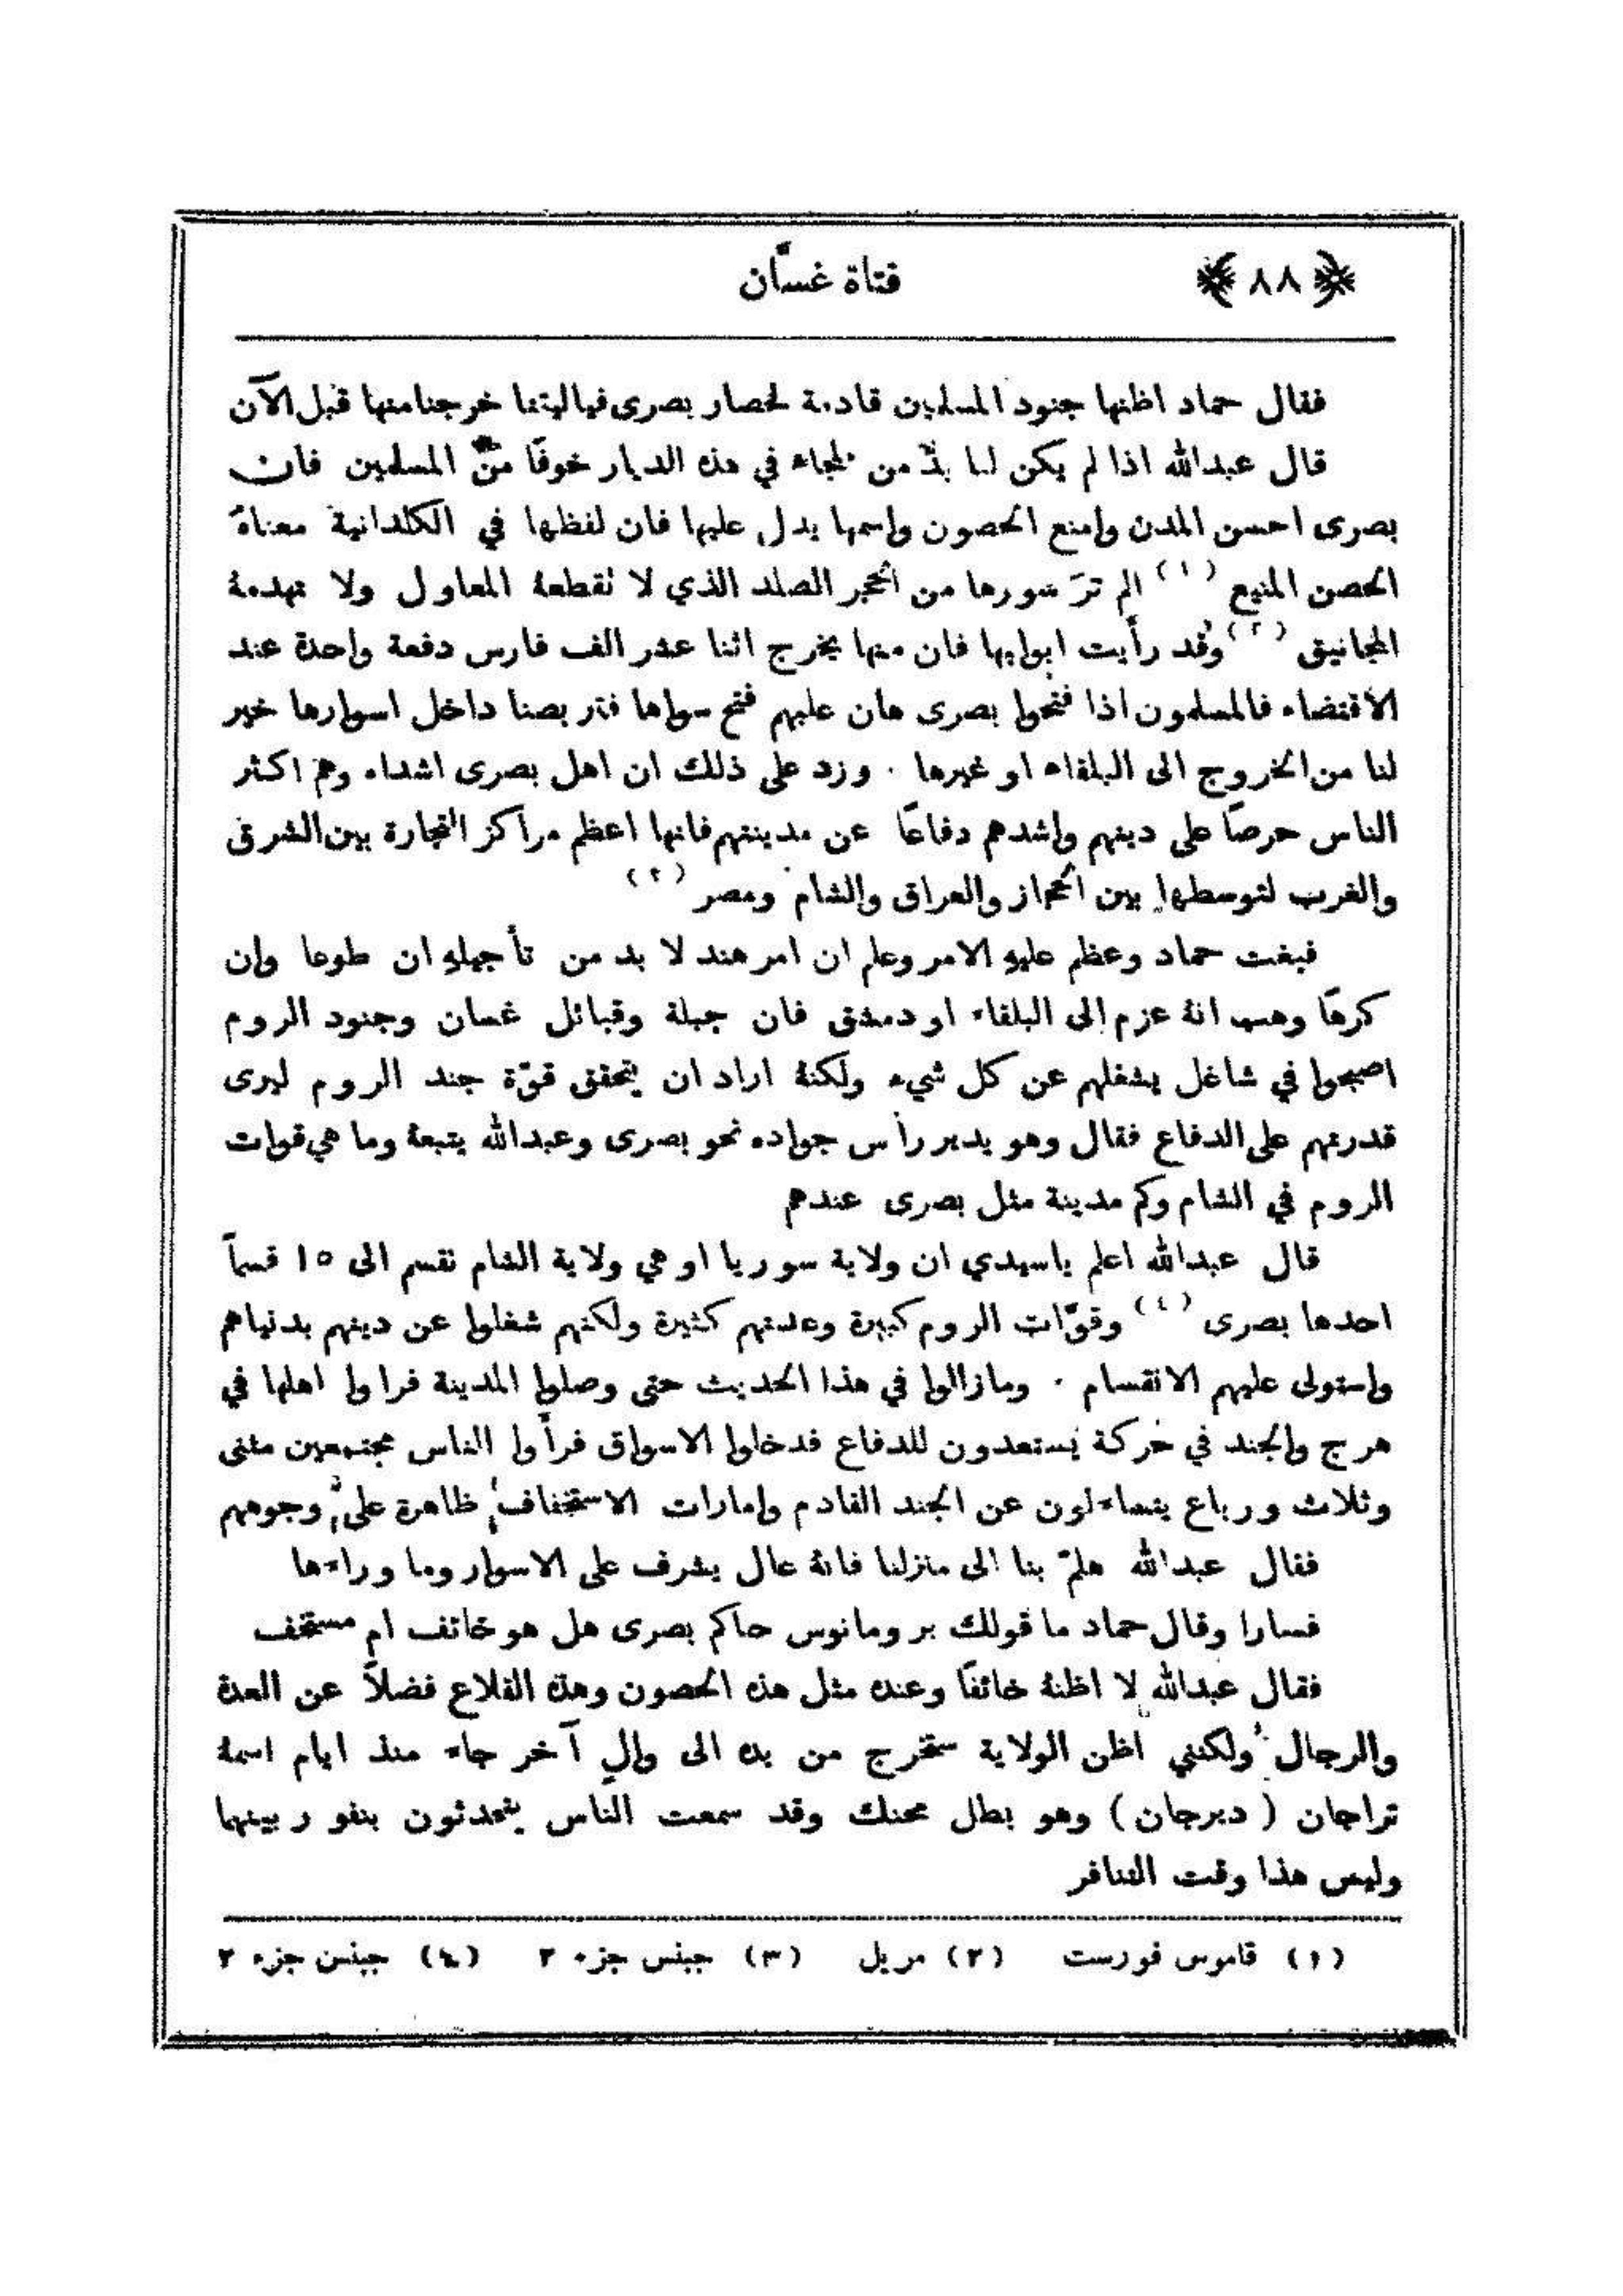 ﴿ ٨٨ ﴾ فتاة غسَّان
فقال حماد اظنها جنود المسلمين قادمة لحصار بصرى فياليتنا خرجنا منها قبل الآن
قال عبدالله اذا لم يكن لنا بدّ من ملجاء في هذه الديار خوفًا من المسلمين فان
بصرى احسن المدن وامنع الحصون واسمها يدل عليها فان لفظها في الكلدانية معناهُ
الحصن المنيع (١) الم ترَ سورها من الحجر الصلد الذي لا تقطعهُ المعاول ولا تهدمهُ
المجانيق (٢) وقد رأَيت ابوابها فان منها يخرج اثنا عشر الف فارس دفعة واحدة عند
الاقتضاء فالمسلمون اذا فتحوا بصرى هان عليهم فتح سواها فتربصنا داخل اسوارها خير
لنا من الخروج الى البلقاء او غيرها . وزد على ذلك ان اهل بصرى اشداء وهم اكثر
الناس حرصًا على دينهم واشدهم دفاعًا عن مدينتهم فانها اعظم مراكز التجارة بين الشرق
والغرب لتوسطها بين الحجاز والعراق والشام ومصر (٢)
فبغت حماد وعظم عليهِ الامر وعلم ان امر هند لا بد من تأجيلهِ ان طوعا وان
كرهًا وهب انهُ عزم الى البلقاء او دمشق فان جبلة وقبائل غسان وجنود الروم
اصبحوا في شاغل يشغلهم عن كل شيء ولكنهُ اراد ان يتحقق قوّة جند الروم ليرى
قدرتهم على الدفاع فقال وهو يدير رأس جواده نحو بصرى وعبدالله يتبعهُ وما هي قوات
الروم في الشام وكم مدينة مثل بصرى عندهم
قال عبدالله اعلم ياسيدي ان ولاية سوريا او هي ولاية الشام تقسم الى ١٥ قسماً
احدها بصرى (٤) وقوّات الروم كبيرة وعدتهم كثيرة ولكنهم شغلوا عن دينهم بدنياهم
واستولى عليهم الانقسام . ومازالوا في هذا الحديث حتى وصلوا المدينة فراوا اهلها في
هرج والجند في حركة يستعدون للدفاع فدخلوا الاسواق فرأَوا الناس مجتمعين مثنى
وثلاث ورباع يتساءلون عن الجند القادم وامارات الاستخفاف ظاهرة على وجوههم
فقال عبدالله هلمّ بنا الى منزلنا فانهُ عال يشرف على الاسوار وما وراءها
فسارا وقال حماد ما قولك برومانوس حاكم بصرى هل هو خائف ام مستخف
فقال عبدالله لا اظنهُ خائفًا وعنده مثل هذه الحصون وهذه القلاع فضلاً عن العدة
والرجال ولكنني اظن الولاية ستخرج من يده الى والٍ آخر جاء منذ ايام اسمهُ
تراجان ( ديرجان ) وهو بطل محنك وقد سمعت الناس يتحدثون بنفور بينهما
وليس هذا وقت التنافر
(١) قاموس فورست (٢) مريل (٣) جبنس جزء ٢ (٤) جبنس جزء ٢